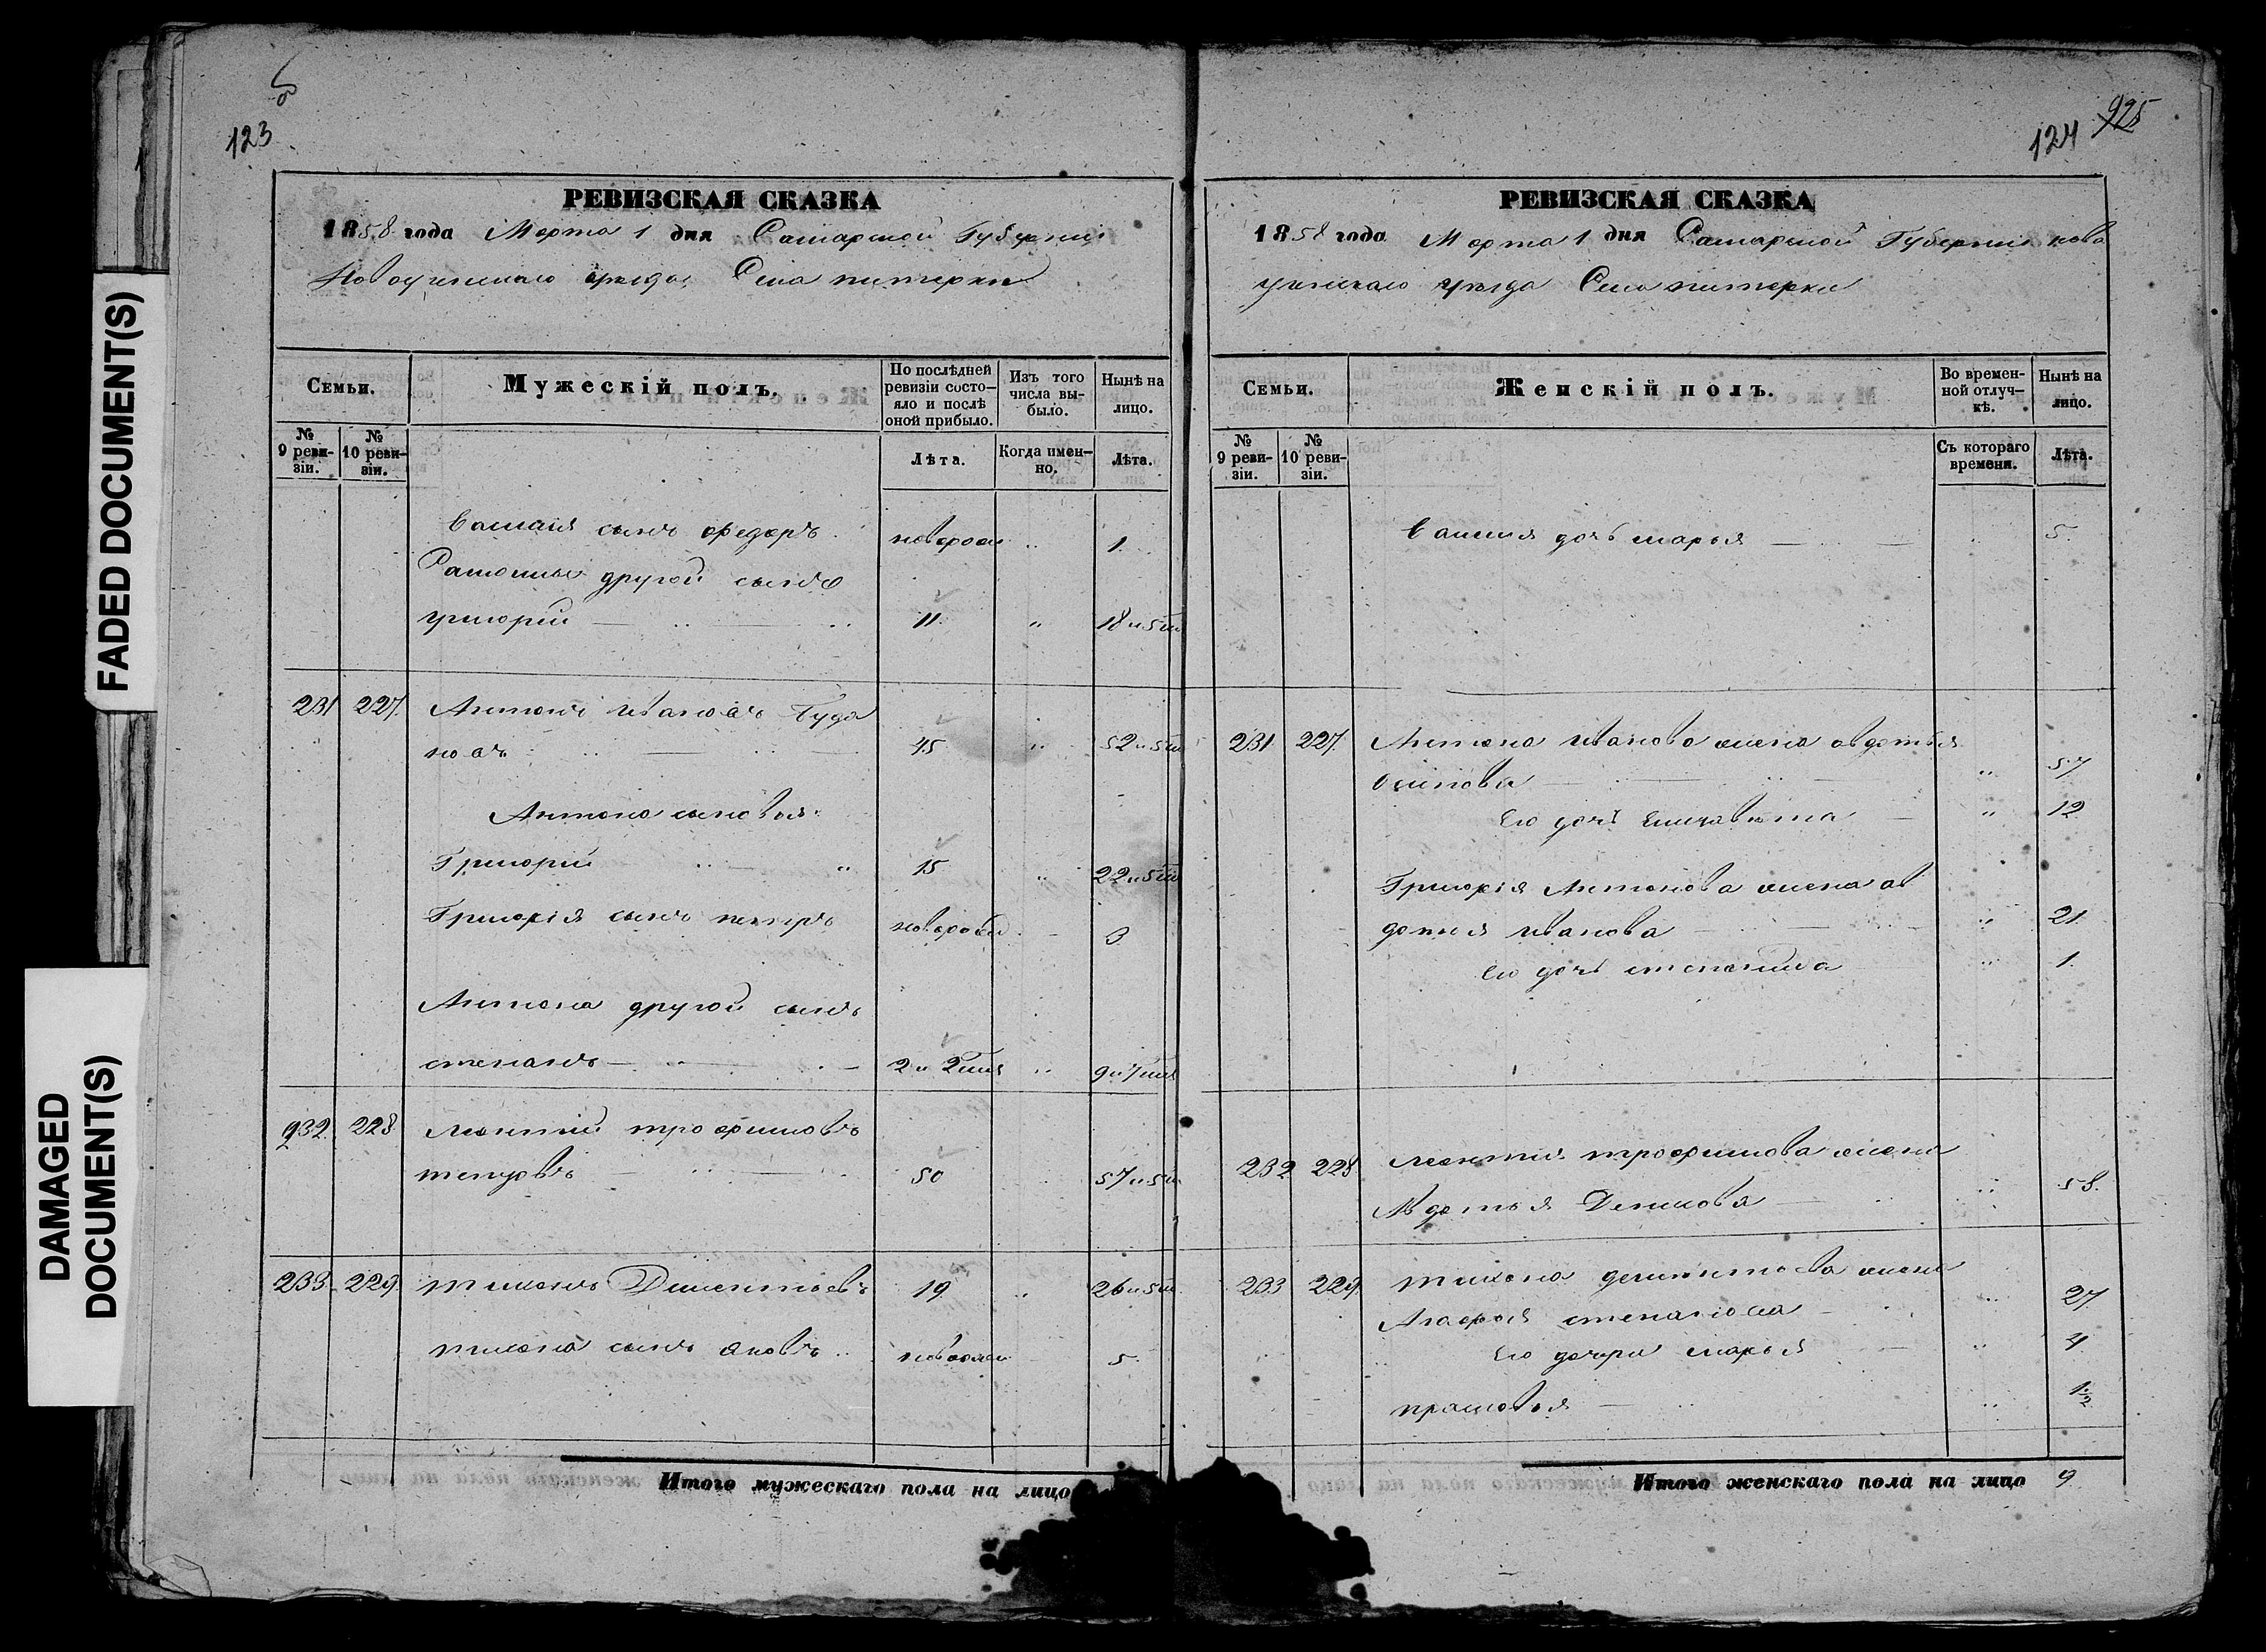 FADED DOCUMENT(S)
DAMAGED
DOCUMENT(S)
123
РЕВИЗСКАЯ СКАЗКА
1858 года Марта 1 дня Самарской Губернии
Новоузенскаго уезда Села питерки
Семьи.
Мужескій полъ.
По послѣдней ревизіи состо-яло и послѣ оной прибыло.
Изъ того числа вы-было.
Нынѣ на лицо.
№ 9 реви-зіи.
№ 10 реви-зіи.
Лѣта.
Когда имен-но.
Лѣта.
сынъ федоръ новорож 1
другой сынъ
григорий 11 18
231 227 Антонъ Ивановъ Буда
новъ 45 52
Антона сыновья
Григорий 15 22
Григорія сынъ петръ новорож 3
Антона другой сынъ
степанъ 2 и 9 и
932 228 трофимовъ
50 57
233 229 тихонъ Дементьевъ 19 26
тихона сынъ яковъ 5
Итого мужескаго пола на лицо
124 925
РЕВИЗСКАЯ СКАЗКА
1858 года Марта 1 дня Самарской Губернии ново
узенскаго уезда Села питерки
Семьи.
Женскій полъ.
Во времен-ной отлуч-кѣ.
Нынѣ на лицо.
№ 9 реви-зіи.
№ 10 реви-зіи.
Съ котораго времени.
Лѣта.
дочь марья 5
231 227 Антона Иванова жена авдотья
осипова 57
Его дочь Елизавета 12
Григорія Антонова жена ав
дотья Иванова 21
Его дочь степанида 1
232 228 трофимова жена
Авдотья Денисова 58
233 229 тихона дементьева жена
Агафья степанова 27
Его дочери марья 4
прасковья 1/2
Итого женскаго пола на лицо 9